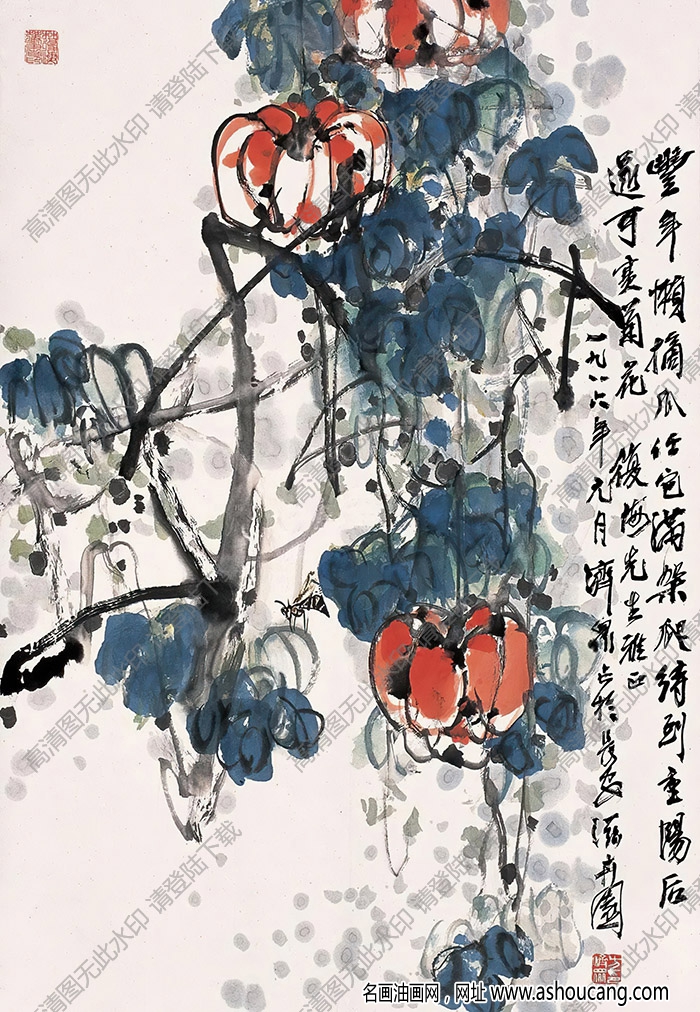 豐年懶摘瓜任它滿架爬待到重陽后
還可賽菊花
先生雅正
一九八六年元月濟眾占於長安
高清图无此水印 请登陆下载
名画油画网，网址 www.ashoucang.com